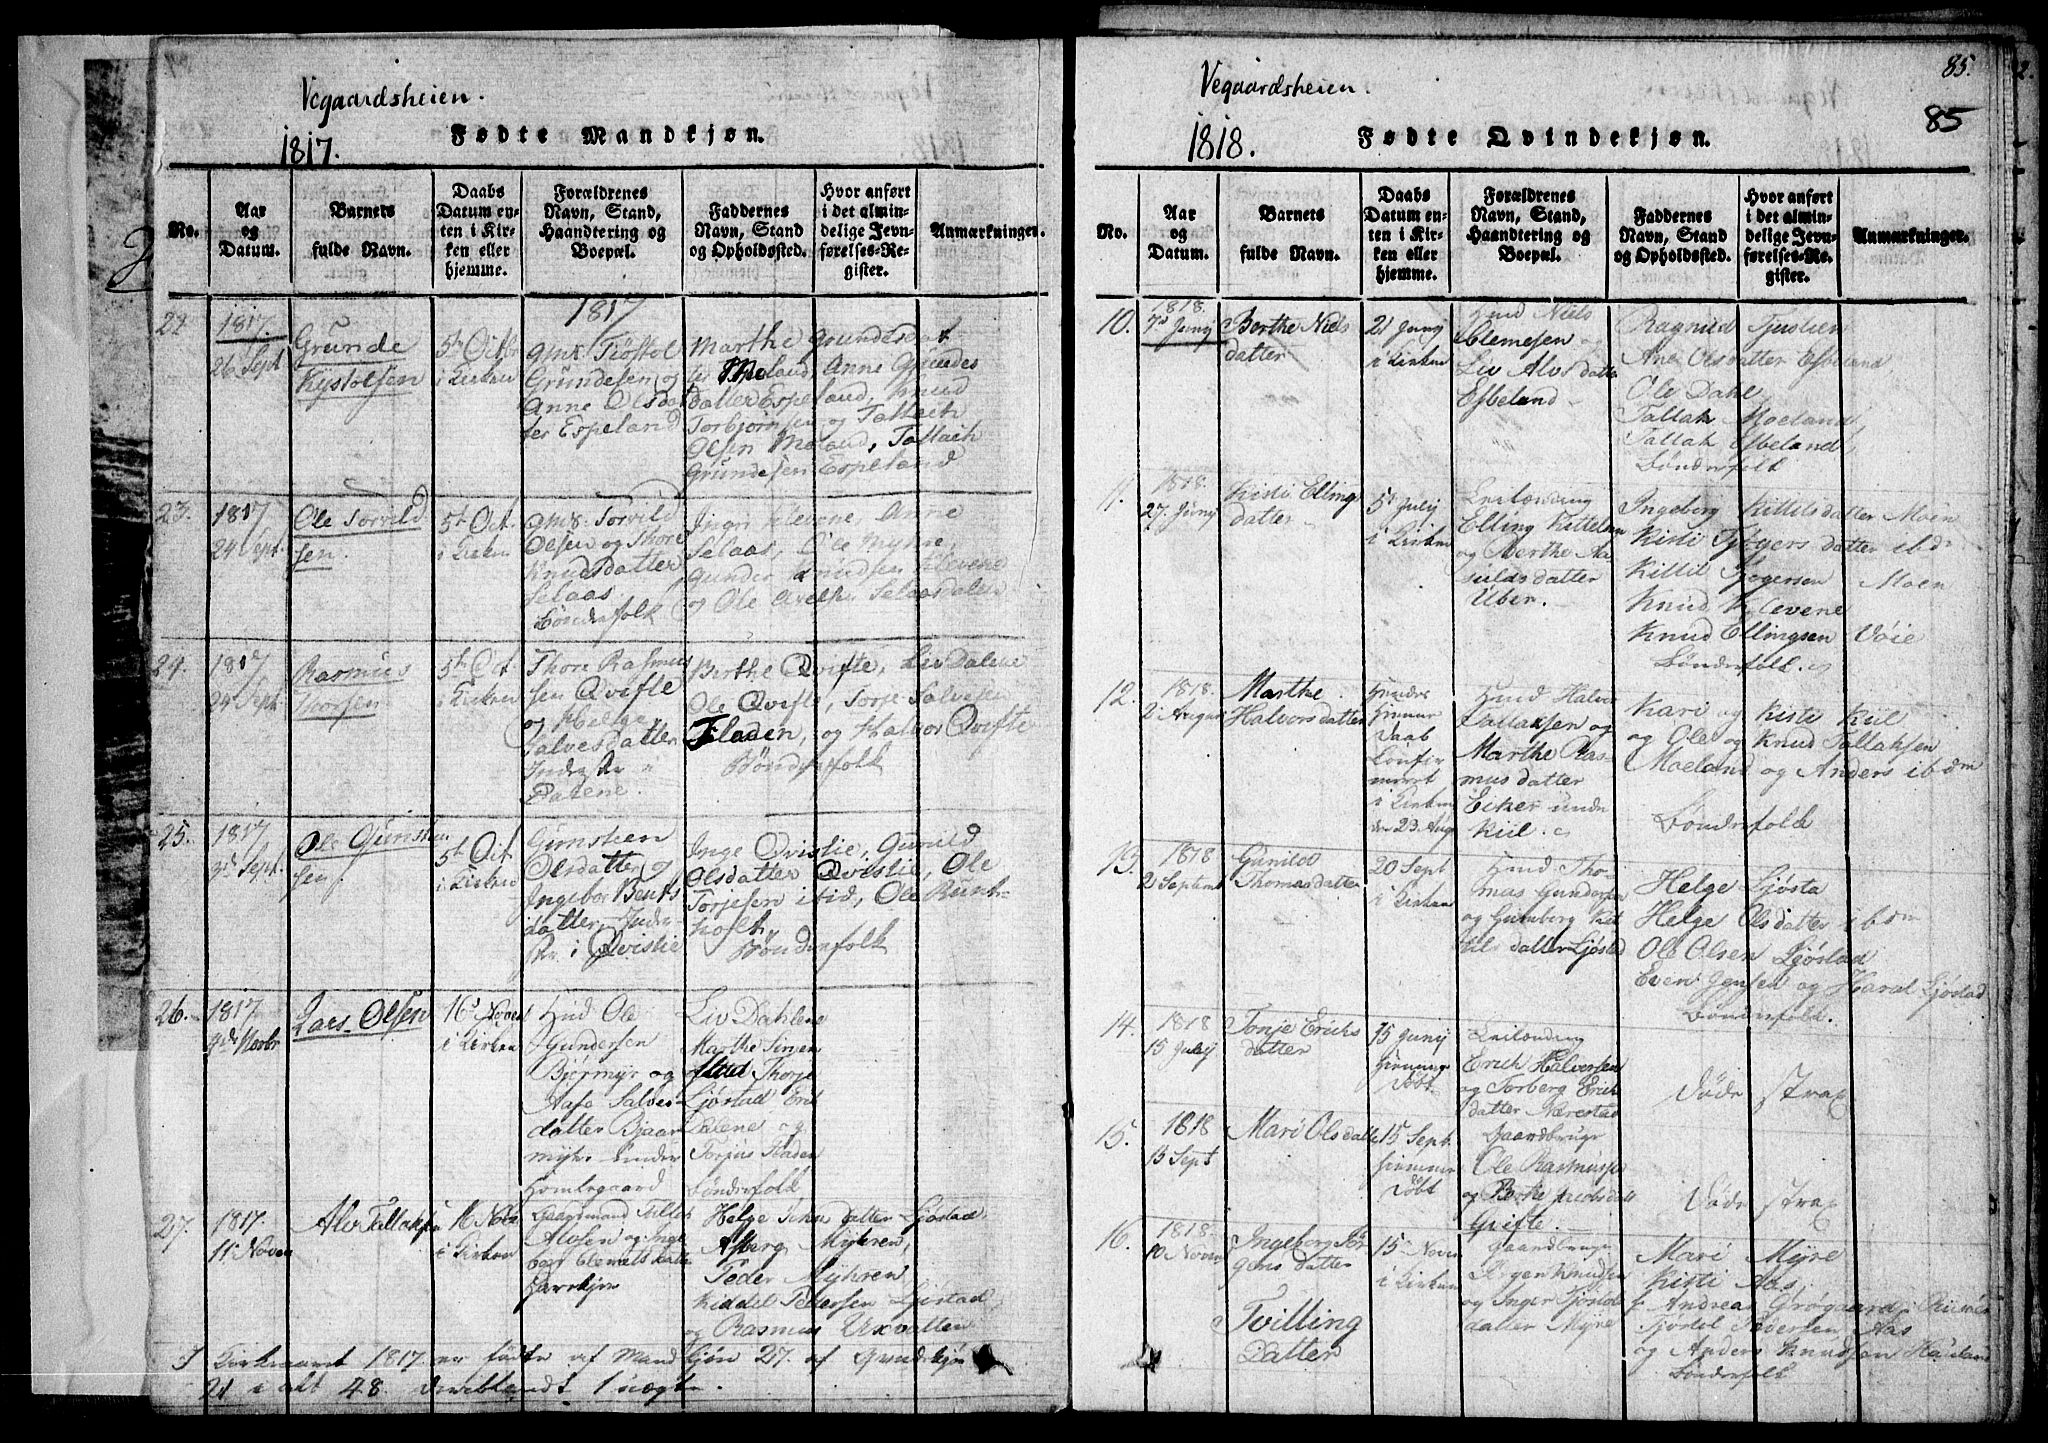 Vegaardsheien.
1817.
Fødte Mandkjøn.
No.
Aar og Datum.
Barnets fulde Navn.
Daabs Datum enten i Kirken eller hjemme.
Forældrenes Navn, Stand, Haandtering og Boepæl.
Faddernes Navn, Stand og Opholdssted.
Hvor anført i det almindelige Jevnførelses-Register.
Anmærkninger.
22.
1817.
26 Sept
Grunde
Kystolsen
5th Octbr
i Kirken
1817
Gmd. Tiøstol
Grundesen og
Anne Olsdat
ter Espeland
Marthe Grundesdat
ter Espeland, Anne Grundes
datter Espeland, Knud
Torbjørnsen og Tallach
Olsen Moland, Tallach
Grundesen Espeland
23.
1817
24 Sept.
Ole Torvild
sen.
5th Oct.
i Kirken
Gmd. Torvild
Olsen og Thore
Knudsdatter
Selaas
Bøndefolk
Ingri Klevene, Anne
Selaas, Ole Myhre,
Gunder Knudsen Klevene
og Ole Selaasdalen
24.
1817
24 Sept.
Rasmus
Thorsen
5th Oct.
i Kirken
Thore Rasmus
sen Qvifte
og Helge
Salvesdatter
Dalene.
Berthe Qvifte, Liv Dalene
Ole Qvifte, Torje Salvesen
Fladen, og Halvor Qvifte
Bøndefolk
25.
1817
3d Sept.
Ole Gunsteen
sen
5th Oct.
i Kirken
Gunsteen
Olsdatter og
Ingebor Bents
datter,
i Qvistie
Inge Qvistie, Gunild
Olsdatter Qvistie, Ole
Torjesen ibid, Ole Reinh-
holt,
Bøndefolk
26.
1817
4de Novbr
Lars Olsen
16d Noven
i Kirken
Hmd Ole
Gundersen
Bjørmyr og
Aase Salves-
datter Bjaar
myhr under
Homlegaard
Liv Dahlene
Marthe Simon
stad Thorje
Ljøstad Erik
Dalene og
Torjus Fladen
Bøndefolk
27.
1817.
11. Noven
Alv Tallaksen
16 Nove
i Kirken
Gaardmand
Alvsen og Inge
bor Clemetsdatter
Helge datter Ljøstad
Asberg Myhren,
Peder Myhren
Kiddel Pedersen Ljøstad,
og Rasmus Uxvatten
I Kirkeaaret 1817 er fødte af Mandkjøn 27. af Qvindekjøn
21 i alt 48. deriblandt 1 uægte.
Vegaardsheien.
1818.
Fødte Qvindekjøn.
85.
85
No.
Aar og Datum.
Barnets fulde Navn.
Daabs Datum enten i Kirken eller hjemme.
Forældrenes Navn, Stand, Haandtering og Boepæl.
Faddernes Navn, Stand og Opholdssted.
Hvor anført i det almindelige Jevnførelses-Register.
Anmærkninger.
10.
1818.
7d Junij
Berthe Niels
datter
21 Junij
i Kirken
Hmd Niels
Clemesen og
Liv Alvsdatter
Esbeland
Ragnild
Ane Olsdatter Esbeland
Ole Dahl
Tallak Moeland
Tallak Esbeland
Bøndefolk
11.
1818.
27. Junij
Kisti Elling
datter
5t Julij
i Kirken
Leilænding
Elling Kittelsen
og Berthe As
sulds datter
Uben.
Ingeborg Kittilsdatter Moen
Kisti Tjøgersdatter ibdm
Kittil Tjøgersen Moen
Knud Klevene
Knud Ellingsen Voie
Bøndefolk.
12.
1818.
2 August
Marthe
Halvorsdatter
Hiemme
Daab
Confir
meert
i Kirken
den 23. Aug
Hmd Halvor
Tallaksen og
Marthe Ras-
mus datter
Eiker under
Kiil.
Kari og Kisti Kiil
og Ole og Knud Tallaksen
Moeland og Anders ibdm
Bøndefolk
13.
1818
2 Septemb
Gunild
Thomasdatter
20 Sept
i Kirken
Hmd Tho-
mas Gundersen
og Gunberg Kit
tils datter Ljøstad
Helge Ljøsta
Helge Olsdatter ibdm
Ole Olsen Ljøstad
Even Jensen og Haral Ljøstad
Bøndefolk.
14.
1818
15 Julij
Tonje Erichs
datter
15 Junij
Hiemme
Døbt
Leilænding
Erich Halversen
og Torberg Erich
datter Nærestad
Døde strax
15.
1818
15 Sept
Mari Olsdatter
15 Sept.
hiemme
Døbt
Gaardbruger
Ole Rasmussen
og Berthe Jacobsdatter
Qvifte.
Døde strax
16.
1818.
10 Noven
Ingeborg Jør
gens datter
Tvilling
Datter
15 Noven
i Kirken
Gaardbruger
Jørgen Knudsen
og Inger Tjøstol
datter Myre
Mari Myre
Kisti Aas
Andreas Grøgaard i
Tjøstol Pedersen Aas
og Anders Knudsen
Bøndefolk